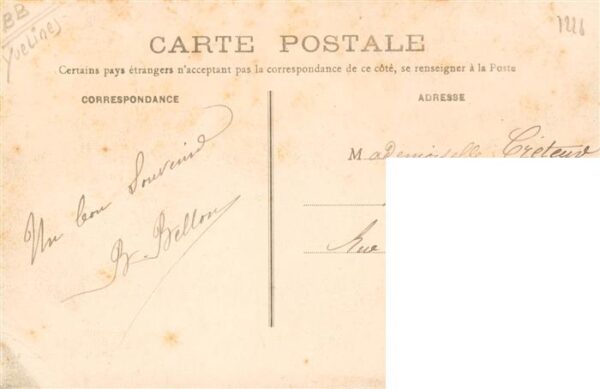 BB
Yvelines
1226
CARTE POSTALE
Certains pays étrangers n'acceptant pas la correspondance de ce côté, se renseigner à la Poste
CORRESPONDANCE
Un bon Souvenir
B. Bellon
ADRESSE
Mademoiselle
Rue